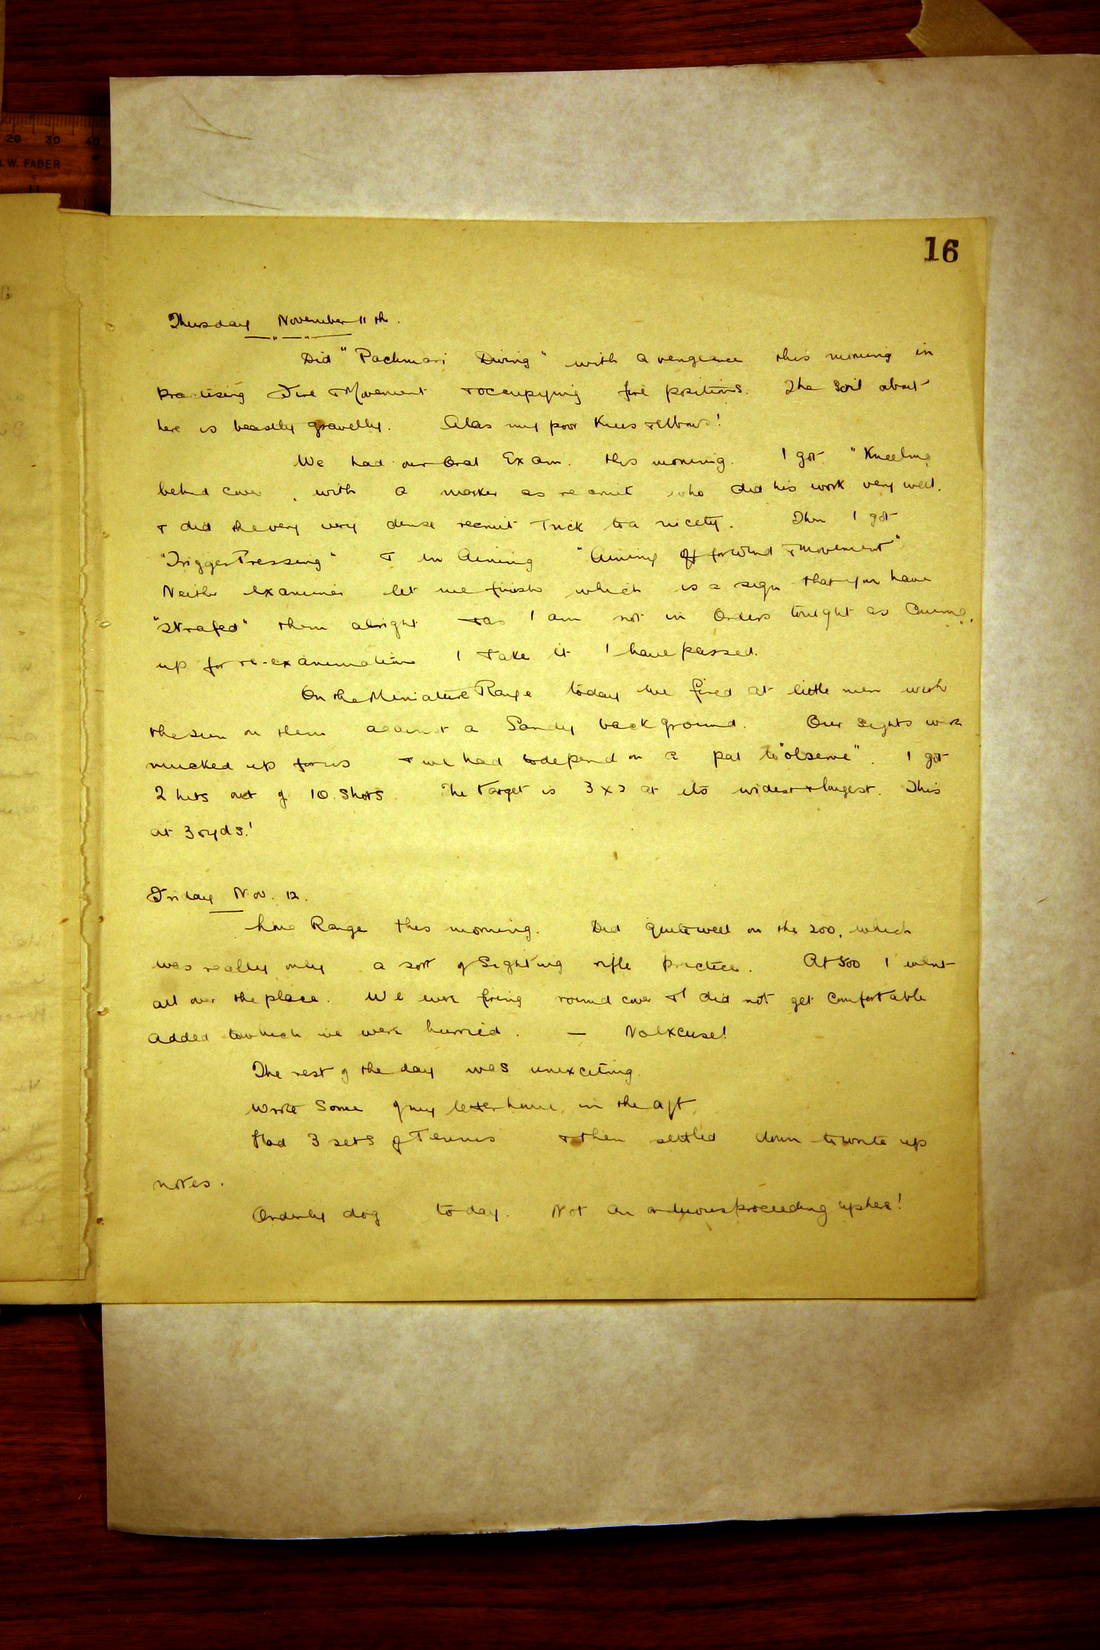 20 30 40
W. FABER
16
Thursday November 11th.
Did "Pachmari Diving" with a vengeance this morning in
practising Fire & Movement & occupying fire positions. The soil about
here is beastly gravelly. Alas my poor knees & elbows!
We had our Oral Exam. this morning. I got "Kneeling
behind cover, with a marker as recruit who did his work very well.
& did the very very dense recruit trick to a nicety. Then I got
"Trigger Pressing" & in Aiming "Aiming off for Wind & Movement"
Neither examiner let me finish which is a sign that you have
"strafed" them alright & as I am not in Orders tonight as coming
up for re-examination I take it I have passed.
On the Miniature Range today we fired at little men with
the sun on them against a Sandy background. Our sights were
mucked up for us & we had to depend on a pal to "observe". I got
2 hits out of 10 shots. The target is 3 x 2 at its widest & longest. This
at 30 yds!
Friday Nov. 12.
Range this morning. Did quite well on the 200, which
was really only a sort of Sighting rifle practice. At 500 I went
all over the place. We were firing round cover & I did not get comfortable
added to which we were hurried. — No excuse!
The rest of the day was unexciting.
Wrote some of my letter home in the aft
Had 3 sets of Tennis & then settled down to write up
notes.
Orderly dog today. Not an arduous proceeding up here!